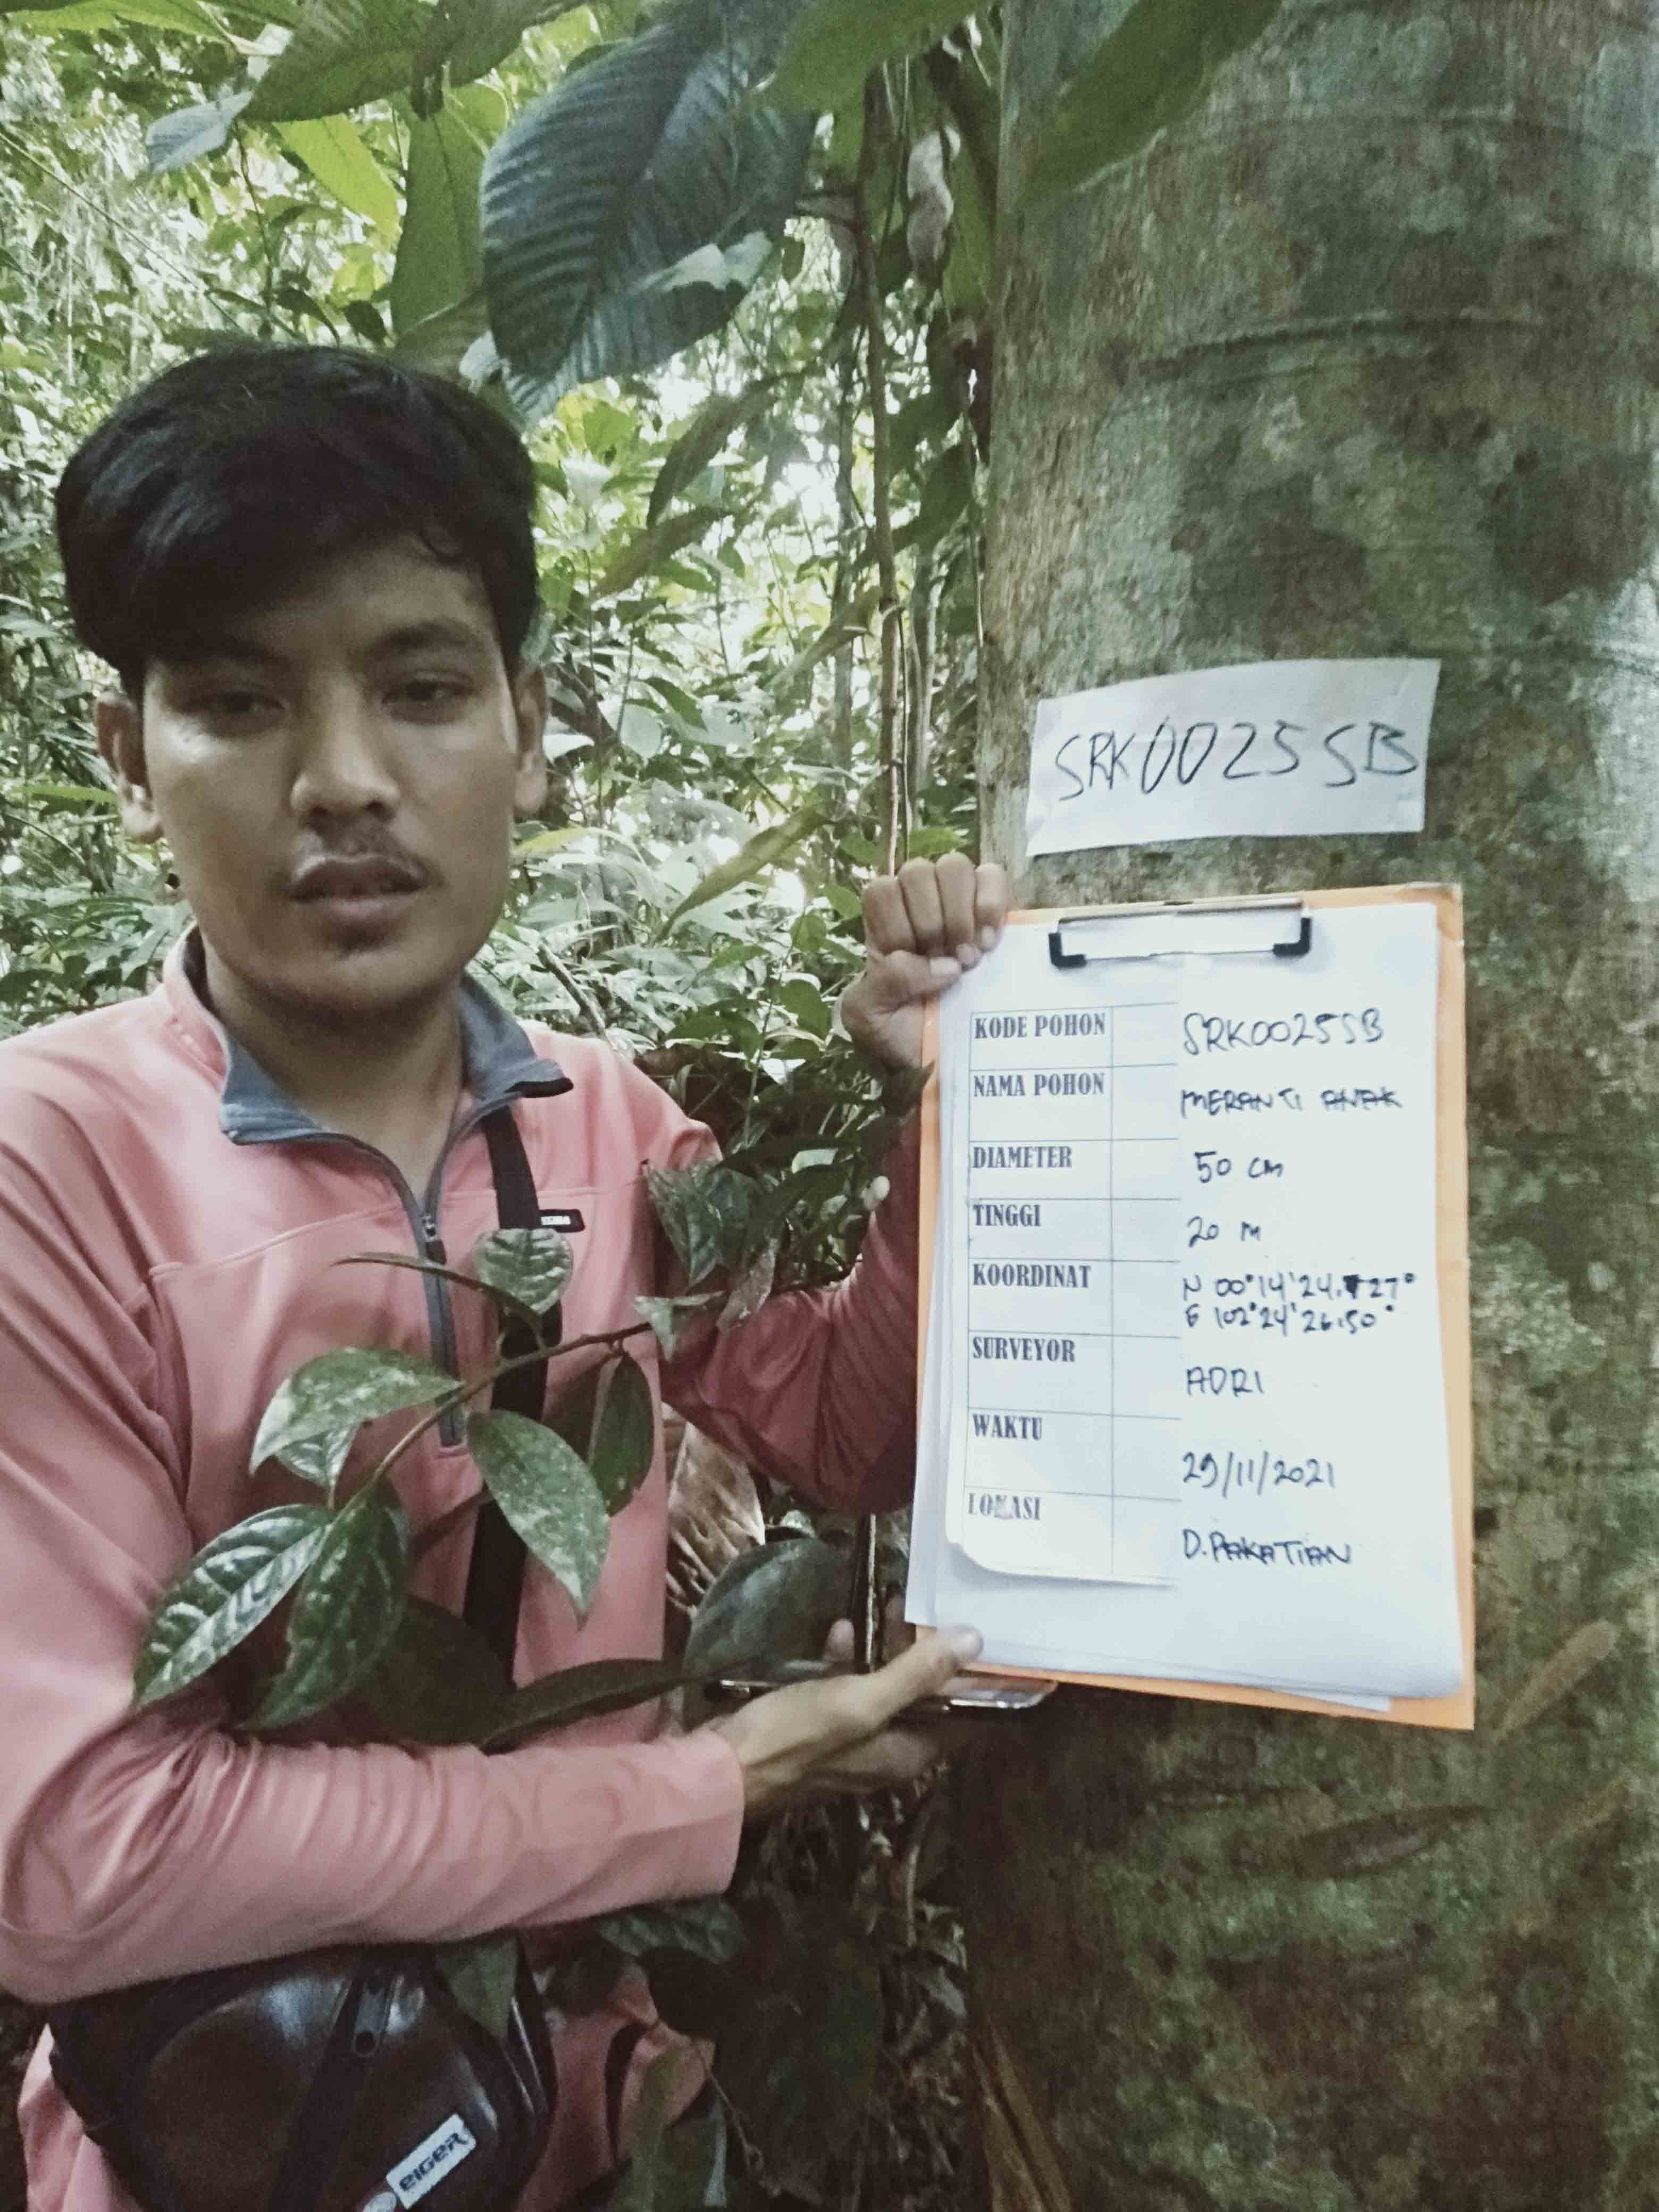 SRK0025SB
KODE POHON SRK0025SB
NAMA POHON MERANTI ANAK
DIAMETER 50 cm
TINGGI 20 m
KOORDINAT N 00°14'24.727°
E 102°24'26.50°
SURVEYOR ADRI
WAKTU 29/11/2021
LOKASI D.PAKATIAN
EIGER